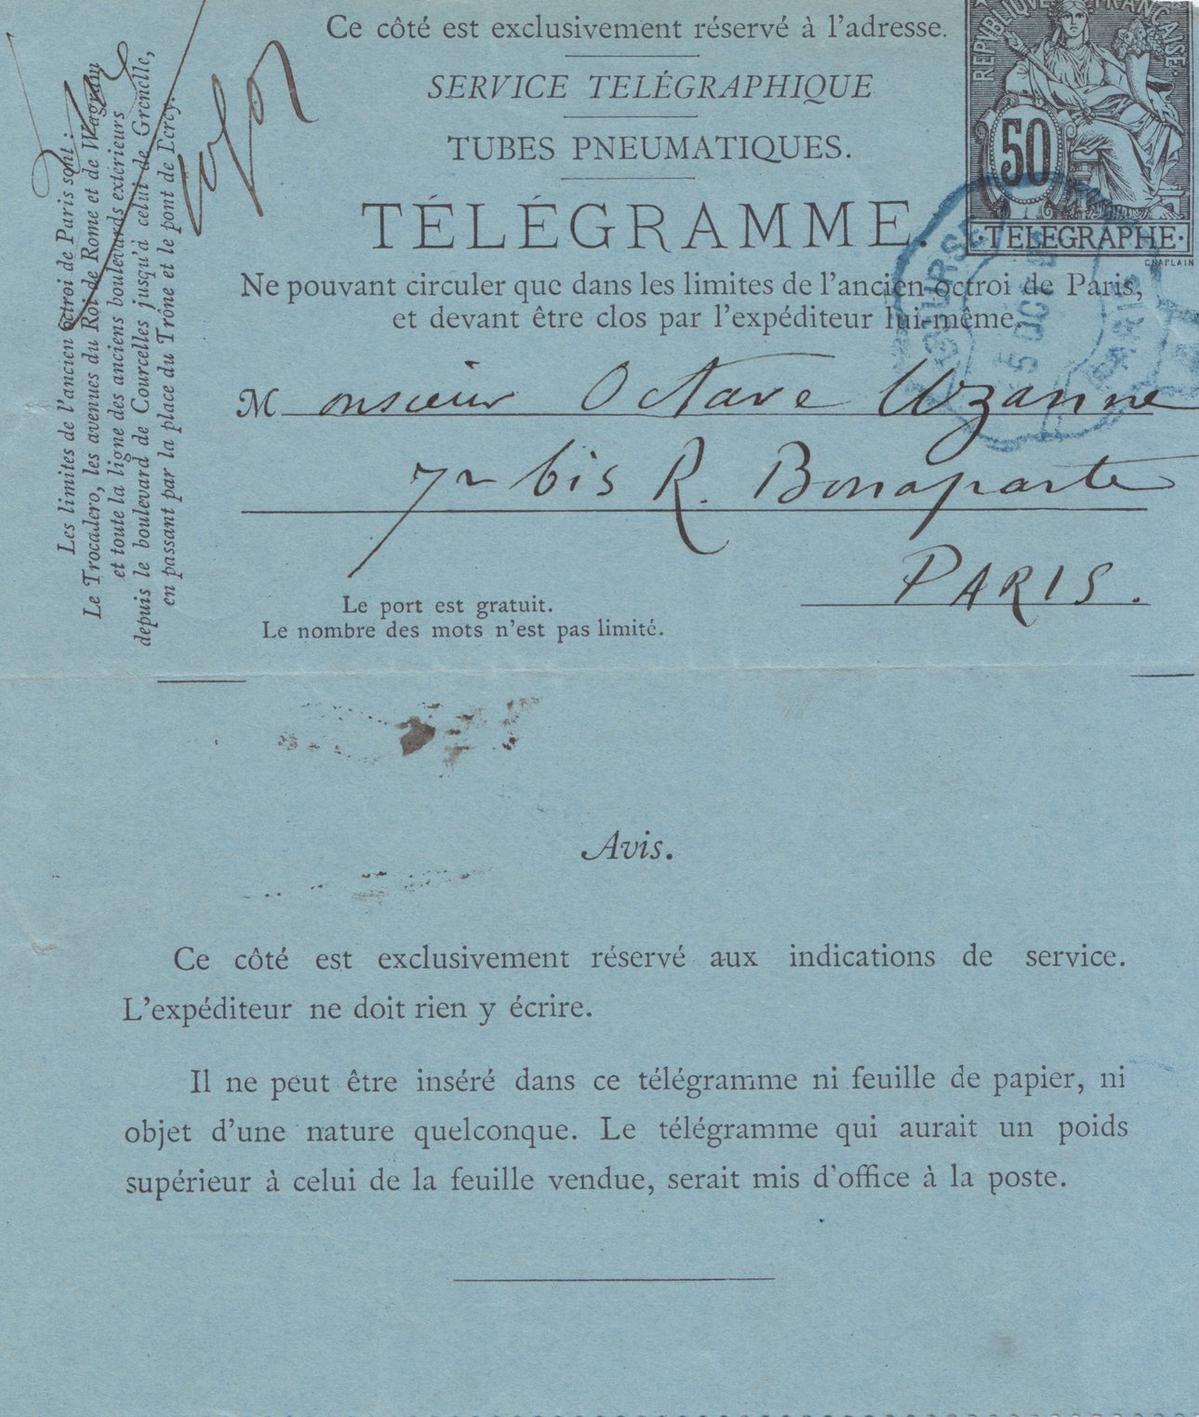 Ce côté est exclusivement réservé à l'adresse.
SERVICE TELÉGRAPHIQUE
TUBES PNEUMATIQUES.
TÉLÉGRAMME.
Ne pouvant circuler que dans les limites de l'ancien octroi de Paris,
et devant être clos par l'expéditeur lui-même.
REPUBLIQUE FRANÇAISE
50
TELEGRAPHE
CHAPLAIN
BOURSE
5 OCT
PARIS
Les limites de l'ancien octroi de Paris sont :
Le Trocadero, les avenues du Roi de Rome et de Wagram
et toute la ligne des anciens boulevards extérieurs
depuis le boulevard de Courcelles jusqu'à celui de Grenelle,
en passant par la place du Trône et le pont de Bercy.
Monsieur Octave Uzanne
72 bis R. Bonaparte
PARIS.
Le port est gratuit.
Le nombre des mots n'est pas limité.
Avis.
Ce côté est exclusivement réservé aux indications de service.
L'expéditeur ne doit rien y écrire.
Il ne peut être inséré dans ce télégramme ni feuille de papier, ni
objet d'une nature quelconque. Le télégramme qui aurait un poids
supérieur à celui de la feuille vendue, serait mis d'office à la poste.